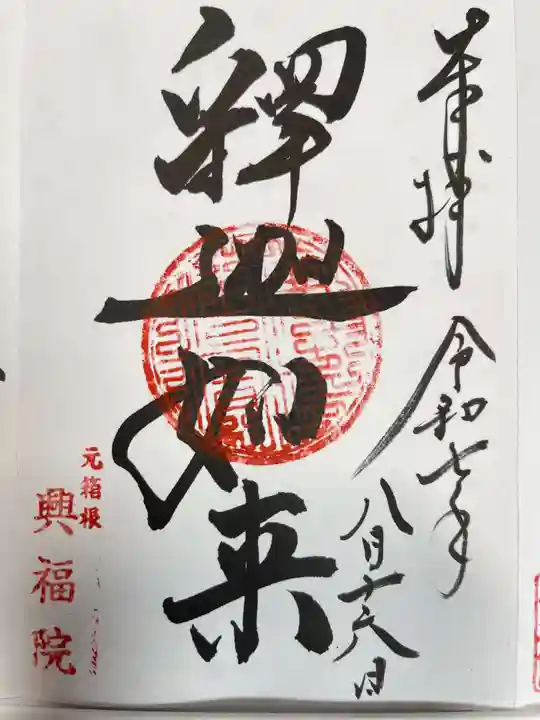 奉拝
令和七年
八月十六日
釋迦如来
元箱根
興福院